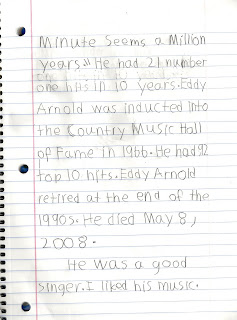 Minute Seems a Million
years." He had 21 number
one hits in 10 years. Eddy
Arnold was inducted into
the Country Music Hall
of Fame in 1966. He had 92
top 10 hits. Eddy Arnold
retired at the end of the
1990s. He died May 8,
2008.
He was a good
singer. I liked his music.